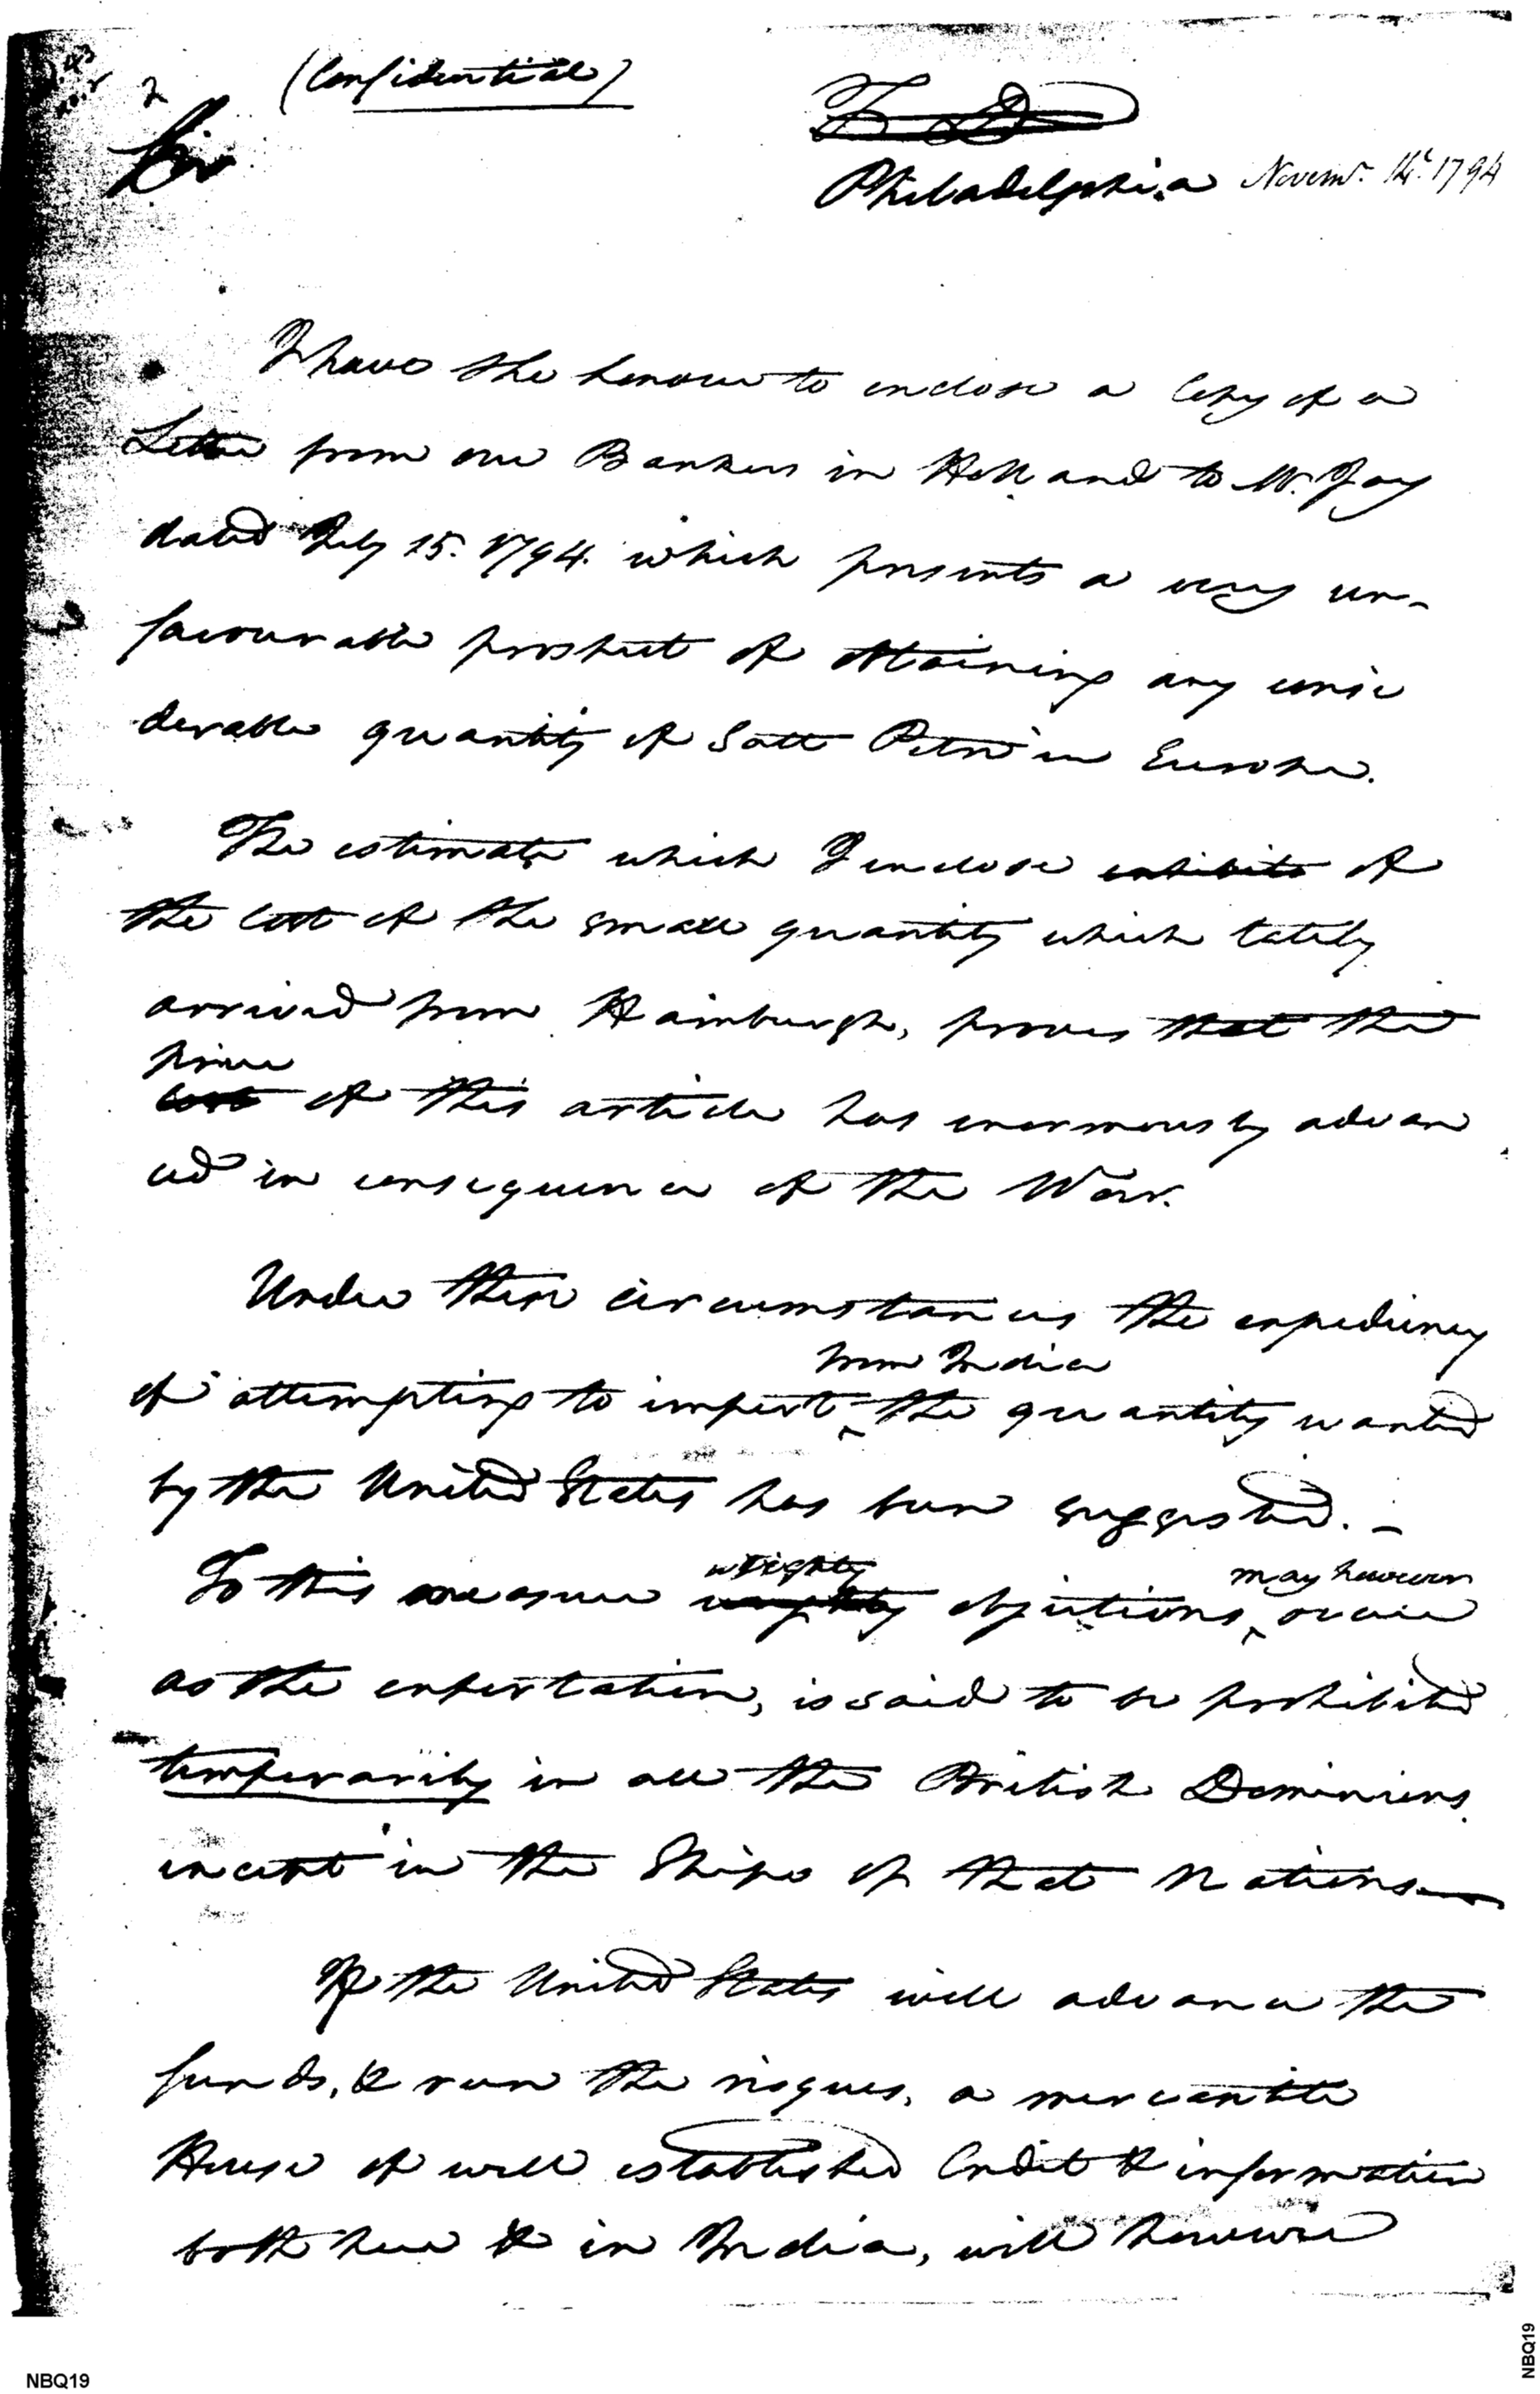 (Confidential)
Sir
T D
Philadelphia Novemr. 14t. 1794
I have the honour to enclose a Copy of a
Letter from our Bankers in Holland to Mr. Jay
dated July 15. 1794. which presents a very un-
favourable prospect of obtaining any consi
derable quantity of Salt Petre in Europe.
The estimate which I enclose exhibits of
the Cost of the small quantity which lately
arrived from Hamburgh, proves that the
price
cost of this article has enormously advan
ced in consequence of the War.
Under these circumstances the expediency
from India
of attempting to import ^ the quantity wanted
by the United States has been suggested. —
weighty may however
To this measure weighty objections ^ occur
as the exportation, is said to be prohibited
temporarily in all the British Dominions
except in the Ships of that Nation—
If the United States will advance the
funds, & run the risques, a mercantile
House of well established Credit & information
both here & in India, will however
NBQ19
NBQ19